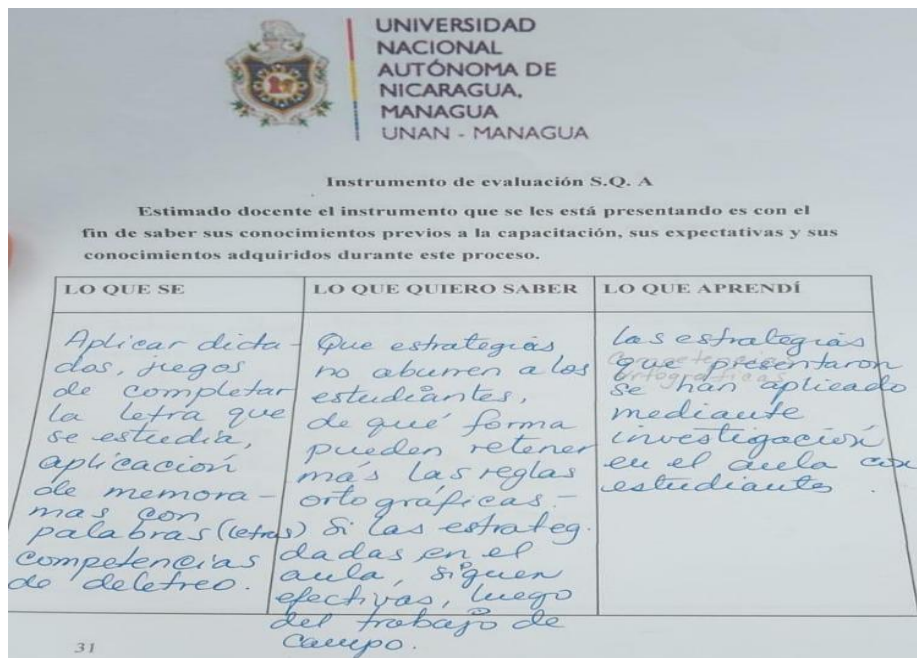 UNIVERSIDAD
NACIONAL
AUTÓNOMA DE
NICARAGUA,
MANAGUA
UNAN - MANAGUA
Instrumento de evaluación S.Q. A
Estimado docente el instrumento que se les está presentando es con el
fin de saber sus conocimientos previos a la capacitación, sus expectativas y sus
conocimientos adquiridos durante este proceso.
LO QUE SE
Aplicar dicta-
dos, juegos
de completar
la letra que
se estudia,
aplicación
de memora-
mas con
palabras (letras)
competencias
de deletreo.
LO QUE QUIERO SABER
Que estrategias
no aburren a los
estudiantes,
de qué forma
pueden retener
más las reglas
ortográficas.-
Si las estrateg.
dadas en el
aula, siguen
efectivas, luego
del trabajo de
campo.
LO QUE APRENDÍ
Las estrategias
que presentaron
se han aplicado
mediante
investigación
en el aula con
estudiantes.
31